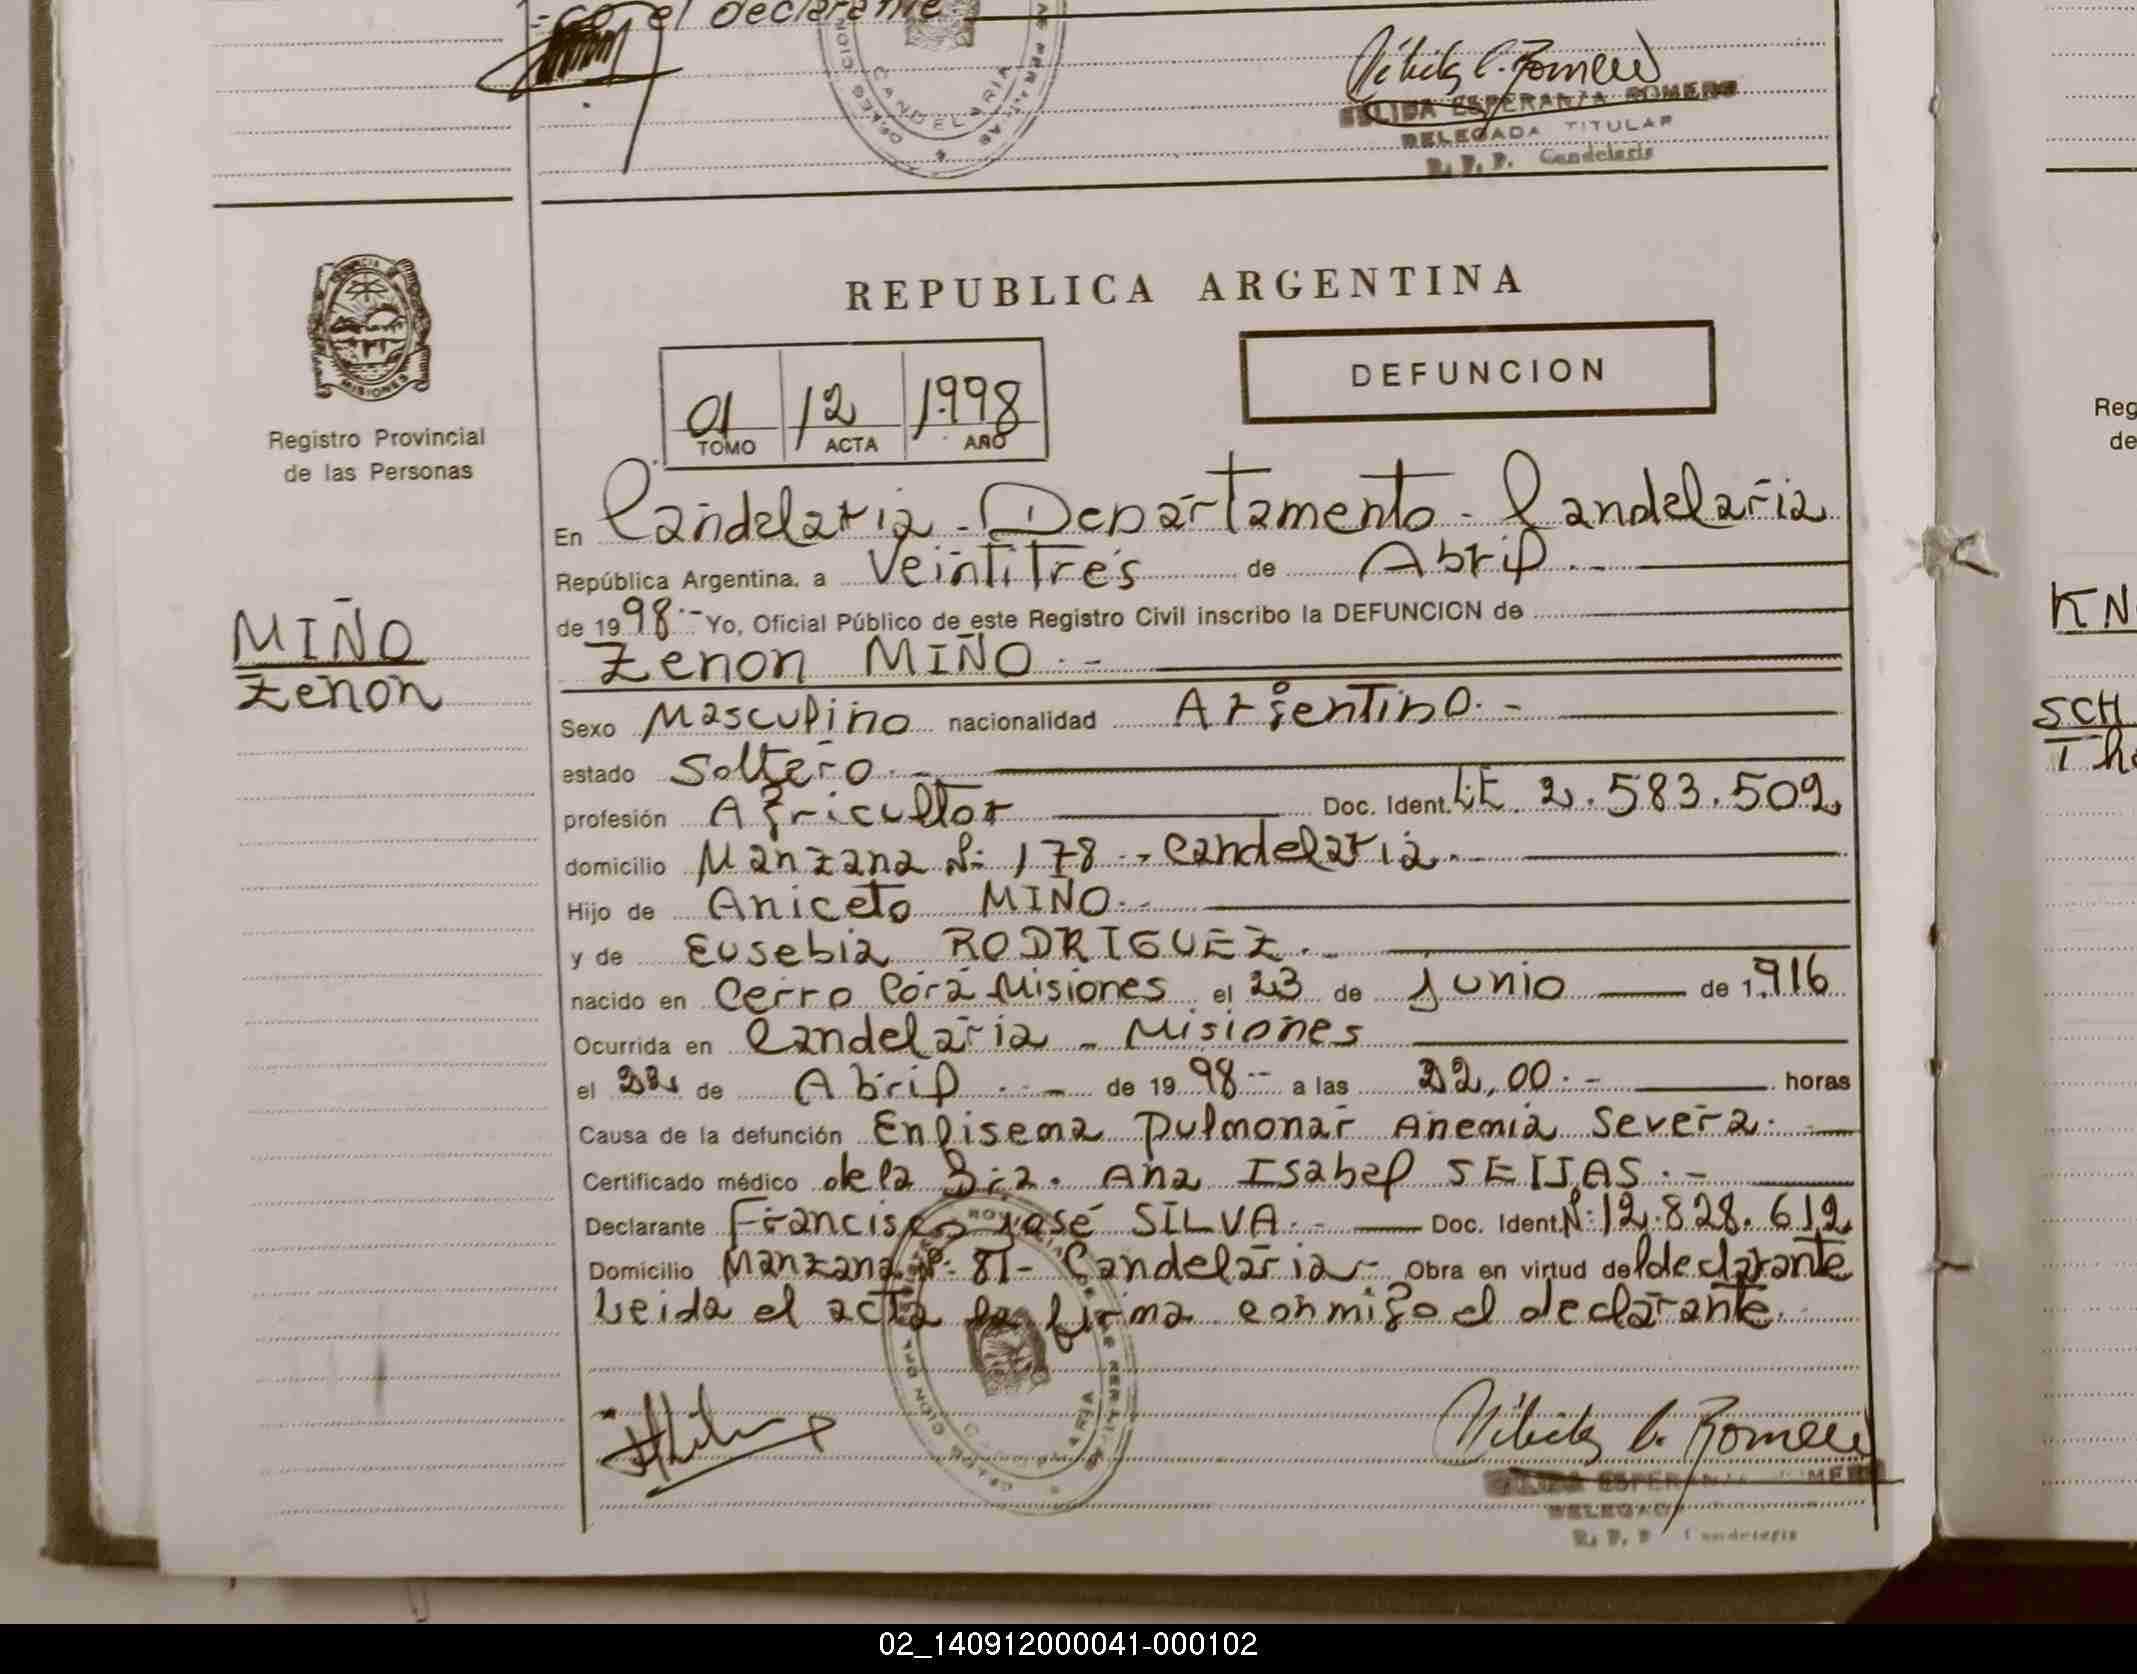 -co el declarante
CANDELARIA
ESPERANZA ROMERO
DELEGADA TITULAR
R. P. P. Candelaria
PROVINCIA DE
MISIONES
Registro Provincial
de las Personas
MIÑO
Zenon
REPUBLICA ARGENTINA
DEFUNCION
01 12 1998
TOMO ACTA AÑO
En Candelaria - Departamento - Candelaria
República Argentina, a Veintitrés de Abril.-
de 1998.- Yo, Oficial Público de este Registro Civil inscribo la DEFUNCION de
Zenon MIÑO.-
Sexo Masculino nacionalidad Argentino.-
estado Soltero.-
profesión Agricultor Doc. Ident. L:E. 2.583.502
domicilio Manzana Nº 178.- Candelaria.-
Hijo de Aniceto MIÑO.-
y de Eusebia RODRIGUEZ.-
nacido en Cerro Corá Misiones el 23 de Junio de 1.916
Ocurrida en Candelaria - Misiones
el 22 de Abril.- de 1998.- a las 22,00.- horas
Causa de la defunción Enfisema Pulmonar Anemia Severa.-
Certificado médico de la Dra. Ana Isabel SEIJAS.-
Declarante Francisco José SILVA.- Doc. Ident. Nº:12.828.612
Domicilio Manzana Nº 81- Candelaria- Obra en virtud del declarante
Leida el acta la firma conmigo el declarante.
ESPERANZA ROMERO
DELEGADA
R. P. P. Candelaria
Reg
de
KN
SCH
Th
02_140912000041-000102